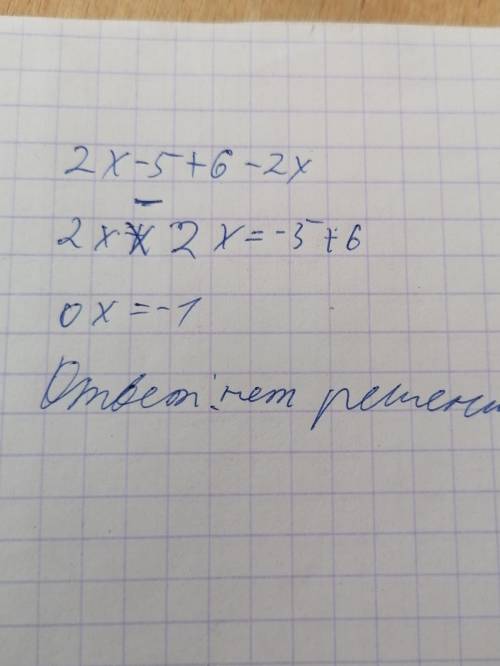 2x-5+6-2x
2x-2x=-5+6
0x=-1
Ответ: нет решени